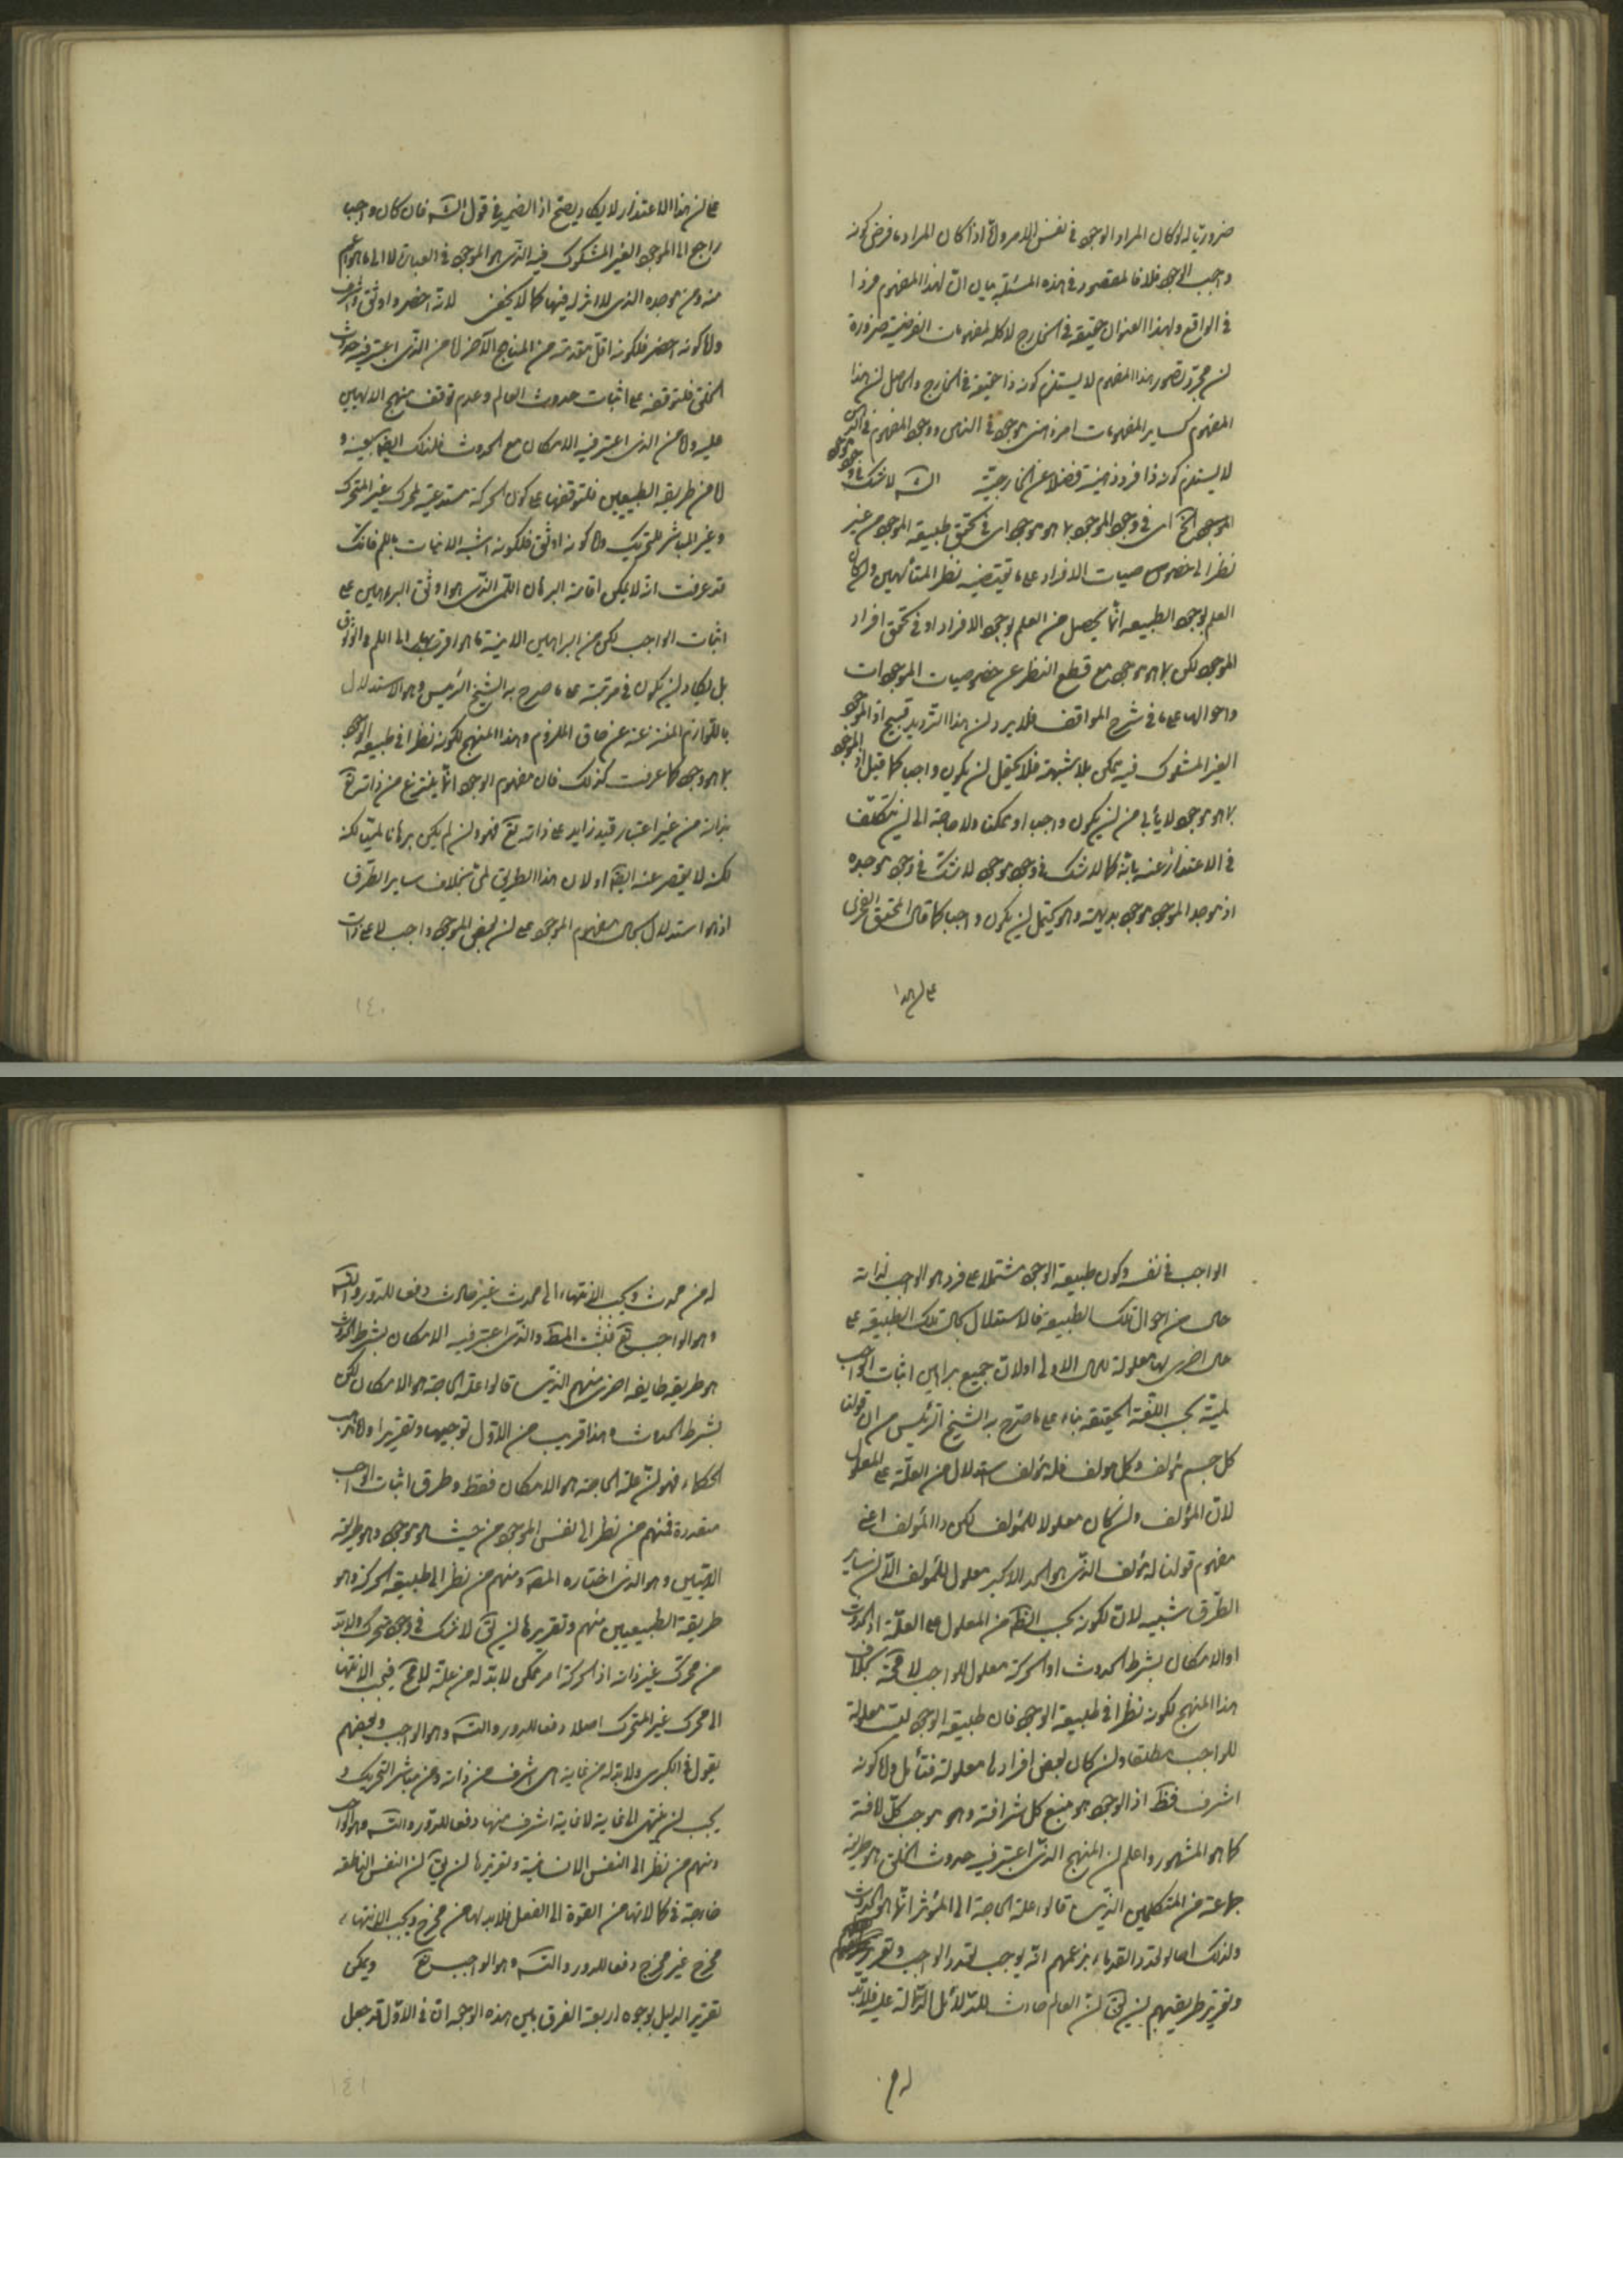 ضروريا له لو كان المراد الوجود فى نفس الامر ولا اذا كان المراد ما فرض كونه
واجب الوجود فلا فالمقصود فى هذه المسئلة بيان ان لهذا المفهوم فردا
فى الواقع ولهذا العنوان حقيقة فى الخارج لا كالمفهومات الفرضية ضرورة
ان مجرد تصور هذا المفهوم لا يستلزم كونه ذا حقيقة فى الخارج والحاصل ان هذا
المفهوم كساير المفهومات امر ذهنى موجود فى الذهن ووجود المفهوم فى الذهن
لا يستلزم كونه ذا فرد ذهنية فضلا عن الخارجية الشـ لا شك فى وجود موجود
الموجود الخ اى فى وجود الموجود بما هو موجود اى فى تحقق طبيعة الموجود من غير
نظر الى خصوصيات الافراد على ما يقتضيه نظر المتالهين وان كان
العلم بوجود الطبيعة انما يحصل من العلم بوجود الافراد او فى تحقق افراد
الموجود لكن بما هو موجود مع قطع النظر عن خصوصيات الموجودات
واحوالها على ما فى شرح المواقف فلا يرد ان هذا الترديد قبيح اذ الموجود
الغير المشكوك فيه ممكن بلا شبهة فلا يحتمل ان يكون واجبا كما قيل اذ الموجود
بما هو موجود لا يأبى من ان يكون واجبا او ممكنا ولا حاجة الى ان يتكلف
فى الاعتذار عنه بانه كما لا شك فى وجود موجود لا شك فى وجود موجده
اذ موجد الموجود موجود بديهة وهو يحتمل ان يكون واجبا كما قال المحقق الفخرى
على ان هذا
على ان هذا الاعتذار لا يكاد يصح اذ الضمير فى قول الشـ فان كان واجبا
راجع الى الموجود الغير المشكوك فيه الذى هو الموجود فى العبارة لا الى ما هو اعم
منه ومن موجده الذى لا اثر له فيها كما لا يخفى لانه اخصر واوثق واشرف
واما كونه اخصر فلكونه اقل مقدمة من المناهج الآخر اما من الذى اعتبر فيه حدوث
الخلق فلتوقفه على اثبات حدوث العالم وعدم توقف منهج الالهيين
عليه واما من الذى اعتبر فيه الامكان مع الحدوث فلذلك ايضا بعينه و
اما من طريقة الطبيعيين فلتوقفها على كون الحركة مستدعية لمحرك غير المتحرك
وغير المباشر للتحريك واما كونه اوثق فلكونه اشبه الانيات باللم فانك
قد عرفت انه لا يمكن اقامة البرهان اللمى الذى هو اوثق البراهين على
اثبات الواجب لكن من البراهين الانية ما هو اقرب بها الى اللم والوثوق
بل يكاد ان يكون فى مرتبته على ما صرح به الشيخ الرئيس وهو الاستدلال
باللوازم المنتزعة عن حاق الملزوم وهذا المنهج لكونه نظرا فى طبيعة الوجود
بما هو وجود كما عرفت كذلك فان مفهوم الوجود انما ينتزع من ذاته تع
بذاته من غير اعتبار قيد زايد على ذاته تع فهو وان لم يكن برهانا لميا لكنه
لكنه لا يقصر عنه ايضا او لان هذا الطريق لمى بخلاف ساير الطرق
اذ هو استدلال بحال مفهوم الموجود على ان بعض الموجود واجب لا على ذات
الواجب فى نفسه وكون طبيعة الوجود مشتملا على فرد هو الواجب لذاته
حال من احوال تلك الطبيعة فالاستدلال بحال تلك الطبيعة على
حال اخرى لها معلولة للحال الاولى او لان جميع براهين اثبات الواجب
لمية بحسب اللغة الحقيقة بناء على ما صرح به الشيخ الرئيس من ان قولنا
كل جسم مؤلف وكل مؤلف فله مؤلف استدلال من العلة على المعلول
لان المؤلف وان كان معلولا للمؤلف لكن ذا المؤلف اعنى
مفهوم قولنا له مؤلف الذى هو الحد الاكبر معلول للمؤلف الا ان ساير
الطرق شبيه لان لكونه بحسب الظ من المعلول على العلة اذ الحدوث
او الامكان بشرط الحدوث او الحركة معلول للواجب لا محة بخلاف
هذا المنهج لكونه نظرا فى طبيعة الوجود فان طبيعة الوجود ليست معلولة
للواجب مطلقا وان كان بعض افرادها معلولة فتأمل واما كونه
اشرف فظ اذ الوجود هو منبع كل شرافة وهو موجب كل لافة
كما هو المشهور واعلم ان المنهج الذى اعتبر فيه حدوث الخلق هو طريقة
جماعة من المتكلمين الذين قالوا علة الحاجة الى المؤثر انما هو الحدوث
ولذلك احالوا تعدد القدماء بزعمهم انه يوجب تعدد الواجب
وتقرير طريقتهم ان يق ان العالم حادث للدلائل الدالة عليه فلا بد
له من
له من محدث ويجب الانتهاء الى محدث غير حادث دفعا للدور والتسـ
وهو الواجب تع فثبت المط والذى اعتبر فيه الامكان بشرط الحدوث
هو طريقة طايفة اخرى منهم الذين قالوا علة الحاجة هو الامكان لكن
بشرط الحدوث وهذا قريب من الاول توجيها وتقريرا واما مذهب
الحكماء فهو ان علة الحاجة هو الامكان فقط وطرق اثبات الواجب
متعددة فمنهم من نظر الى نفس الموجود من حيث هو موجود وهو طريقة
الالهيين وهو الذى اختاره المصـ ومنهم من نظر الى طبيعة الحركة وهو
طريقة الطبيعيين منهم وتقريرها ان يق لا شك فى وجود متحرك ولا بد له
من محرك غير ذاته اذ الحركة امر ممكن لا بد له من علة لا مح فيجب الانتهاء
الى محرك غير المتحرك اصلا دفعا للدور والتسـ وهو الواجب وبعضهم
يقول فى الكبرى ولا بد له من غاية هى اشرف من ذاته ومن مباشر التحريك و
يجب ان ينتهى الى غاية لا غاية اشرف منها دفعا للدور والتسـ وهو الواجب
ومنهم من نظر الى النفس الانسانية وتقريرها ان يق ان النفس الناطقة
خارجة فى كمالاتها من القوة الى الفعل فلا بد لها من مخرج ويجب الانتهاء
مخرج غير مخرج دفعا للدور والتسـ وهو الواجب تع ويمكن
تقرير الدليل بوجوه اربعة الفرق بين هذه الوجوه ان فى الاول قد جعل